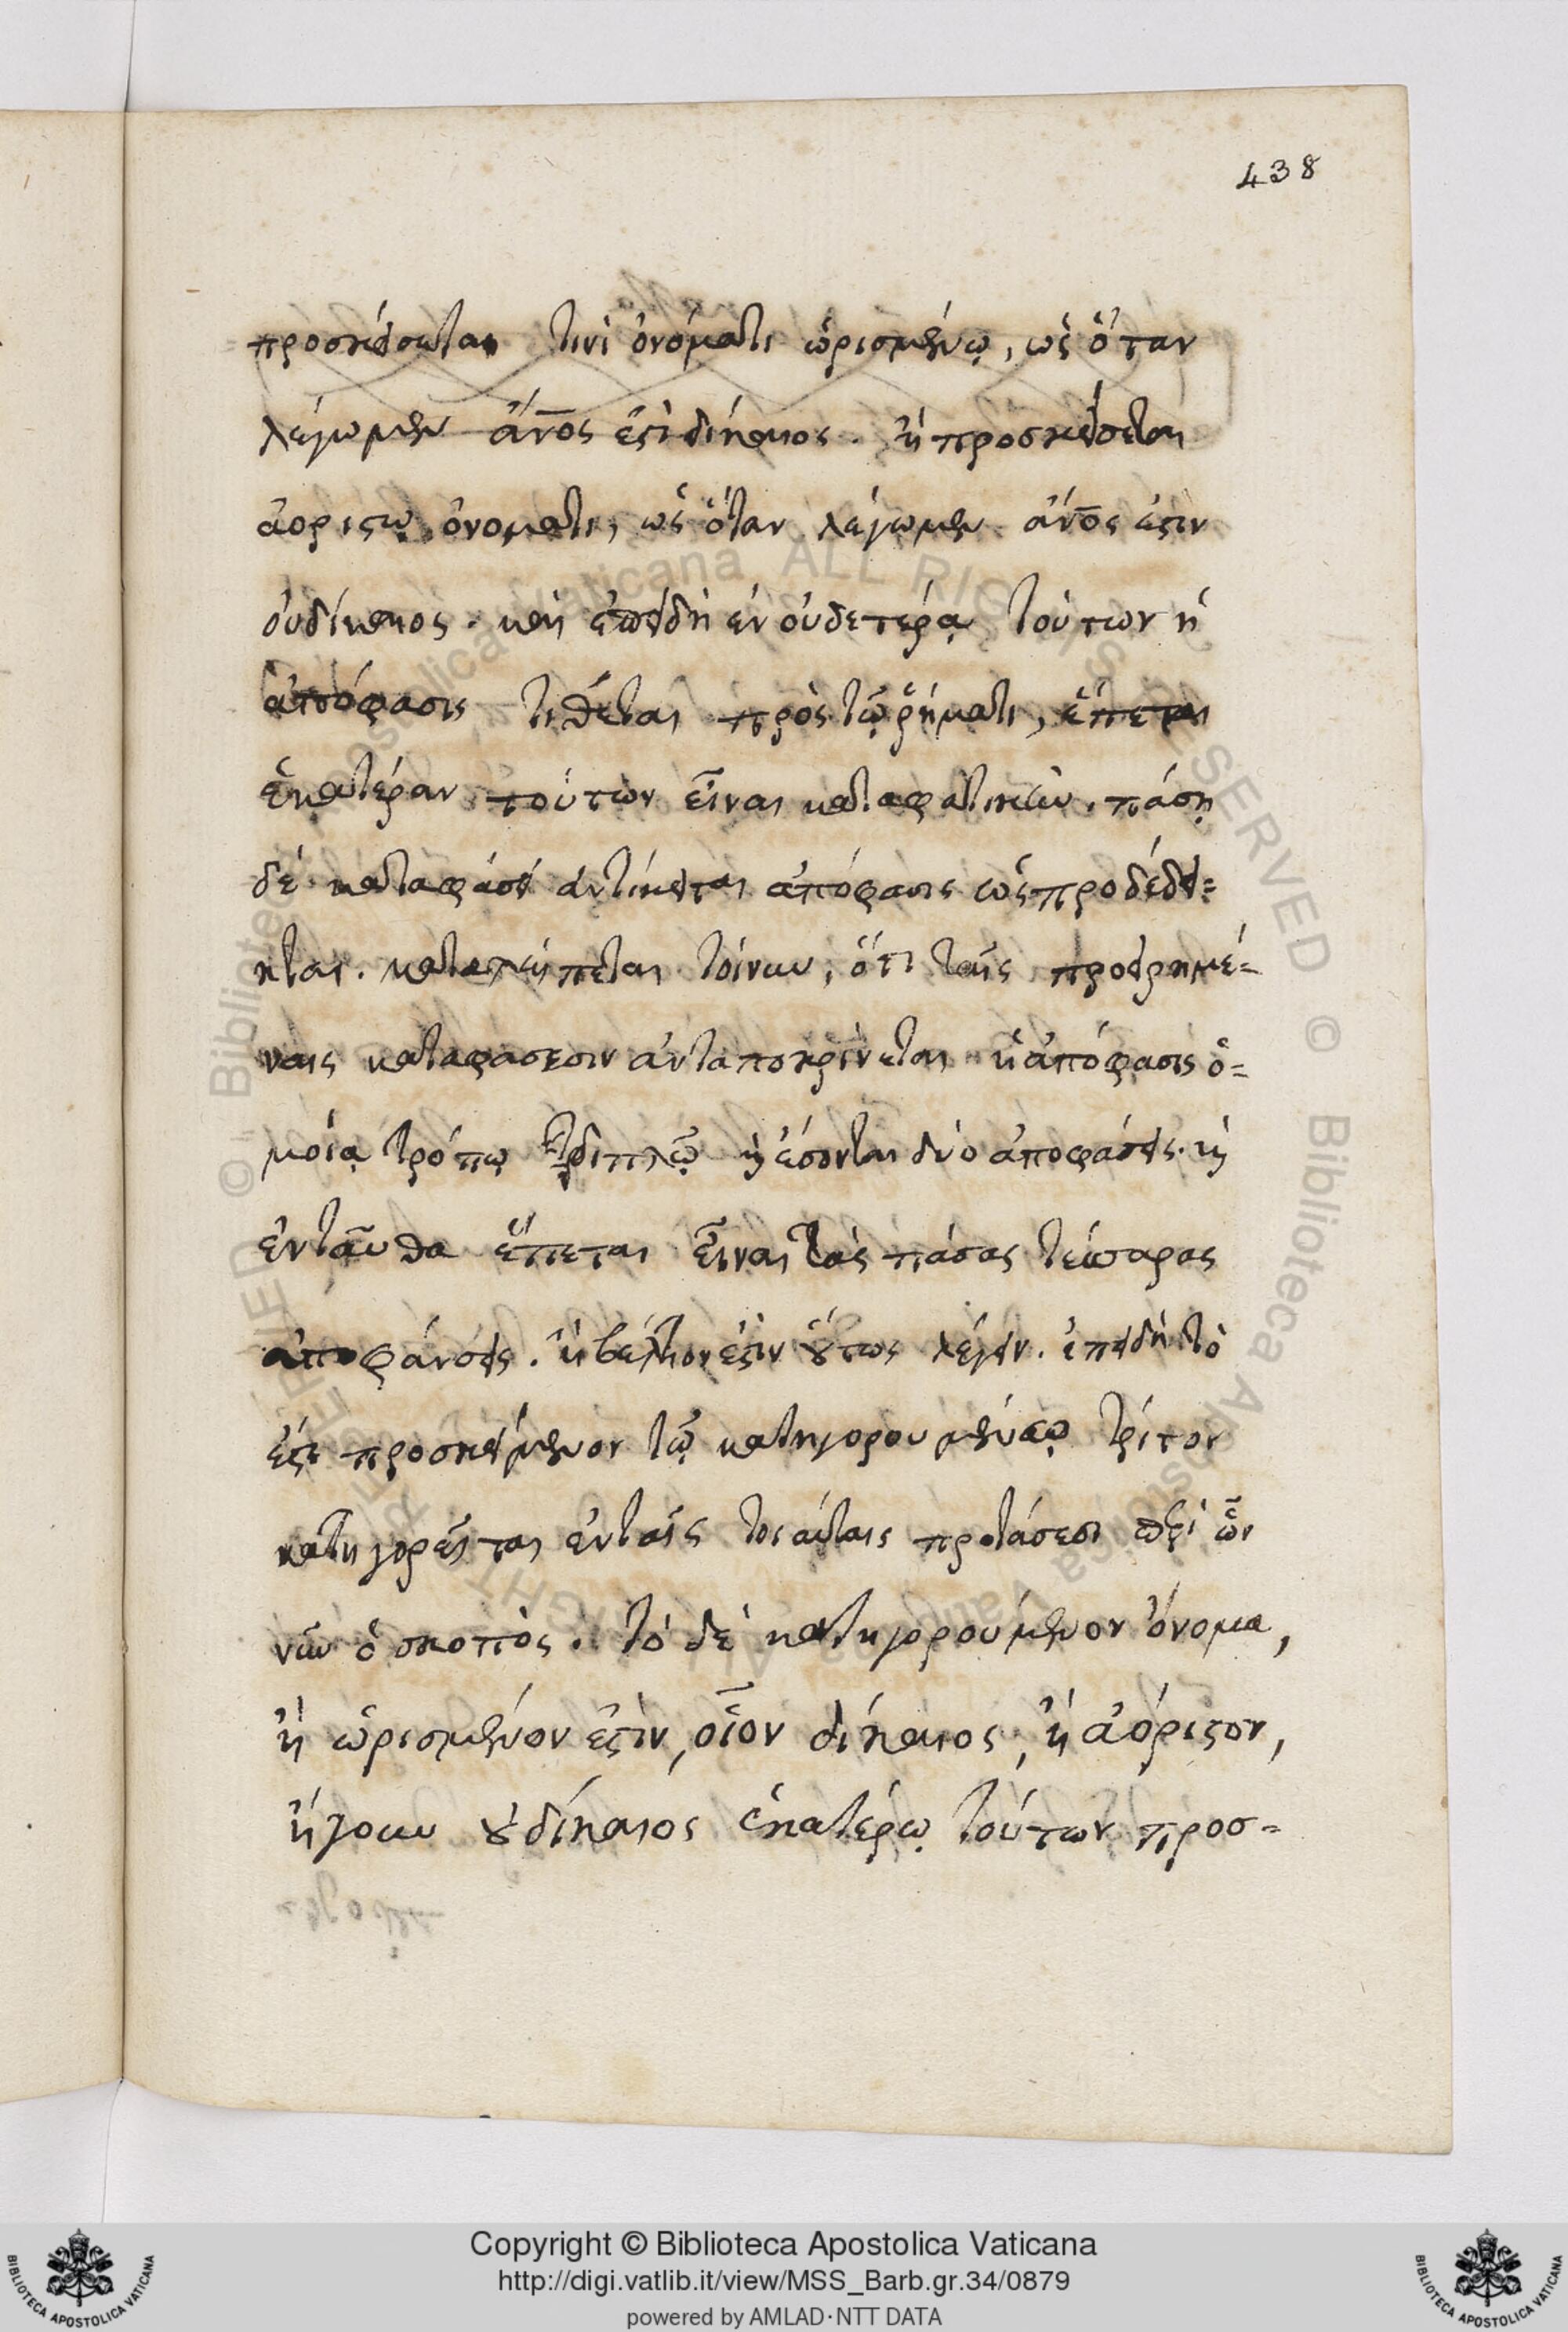 438
προσκείσωται τινὶ ὀνόματι ὡρισμένῳ, ὡς ὅταν
λέγωμεν ἄνος ἐστὶ δίκαιος. ἢ προσκείσεται
ἀορίστῳ ὀνοματι, ὡς ὅταν λέγωμεν ἄνος ἐστιν
οὐδίκαιος. καὶ ἐπειδὴ ἐν οὐδετέρᾳ τούτων ἡ
ἀπόφασις τιθεται πρὸς τῷ ῥήματι, ἕπεται
ἑκατέραν τούτων εἶναι καταφατικὴν. πάσῃ
δὲ καταφάσει ἀντίκειται ἀπόφασις ὡς προδέδει=
κται. καταλείπεται τοίνυν, ὅτι ταῖς προειρημέ=
ναις καταφασεσιν ἀνταποκρίνεται ἡ ἀπόφασις ὁ=
μοίᾳ τρόπῳ διπλῷ ἢ ἔσονται δύο ἀποφάσεις. ἢ
ἐνταῦθα ἕπεται εἶναι τὰς πάσας τέσσαρας
ἀποφάνσεις. ἢ βέλτιον ἐστὶν οὕτως λέγειν. ἐπειδὴ τὸ
ἐστι προσκείμενον τῷ κατηγορουμένῳ τρίτον
κατηγορεῖται ἐν ταῖς τοιαύταις προτάσεσι περὶ ὧν
νῦν ὁ σκοπὸς. τὸ δὲ κατηγορούμενον ὄνομα,
ἢ ὡρισμένον ἐστὶν, οἷον δίκαιος, ἢ ἀόριστον,
ἤγουν οὐδίκαιος ἑκατέρῳ τούτων προσ=
Copyright © Biblioteca Apostolica Vaticana
http://digi.vatlib.it/view/MSS_Barb.gr.34/0879
powered by AMLAD·NTT DATA